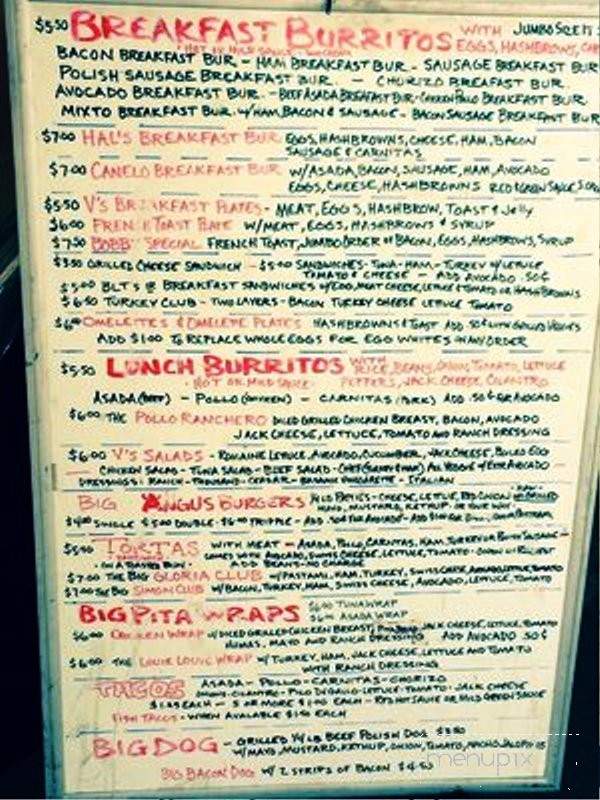 $5.50 BREAKFAST BURRITOS WITH JUMBO
EGGS, HASHBROWNS,
HOT OR MILD SAUCE
BACON BREAKFAST BUR - HAM BREAKFAST BUR - SAUSAGE BREAKFAST BUR
POLISH SAUSAGE BREAKFAST BUR. - CHORIZO BREAFAST BUR
AVOCADO BREAKFAST BUR. - BEEF ASADA BREAKFAST BUR - CHICKEN POLLO BREAKFAST BUR
MIXTO BREAKFAST BUR. W/HAM, BACON & SAUSAGE - BACON SAUSAGE BREAKFAST BUR
$7.00 HAL'S BREAKFAST BUR EGGS, HASHBROWNS, CHEESE, HAM, BACON
SAUSAGE & CARNITAS
$7.00 CANELO BREAKFAST BUR W/ASADA, BACON, SAUSAGE, HAM, AVOCADO
EGGS, CHEESE, HASHBROWNS RED & GREEN SAUCE
$5.50 V'S BREAKFAST PLATES - MEAT, EGGS, HASHBROW, TOAST & Jelly
$6.00 FRENCH TOAST PLATE W/MEAT, EGGS, HASHBROWNS & SYRUP
$7.50 BOBB SPECIAL FRENCH TOAST, JUMBO ORDER OF BACON, EGGS, HASHBROWNS, SYRUP
$3.50 GRILLED CHEESE SANDWICH - $5.00 SANDWICHES - TUNA - HAM - TURKEY W/LETUCE
TOMATO & CHEESE - ADD AVOCADO .50¢
$5.00 BLT'S BREAKFAST SANDWICHES W/EGG, MEAT, CHEESE, LETUCE & TOMATO OR HASHBROWNS
$6.50 TURKEY CLUB - TWO LAYERS - BACON TURKEY CHEESE LETUCE TOMATO
$6.00 OMELETTES & OMELETE PLATES HASHBROWNS & TOAST ADD .50¢ WITH GRILLED VEGGIES
ADD $1.00 TO REPLACE WHOLE EGGS FOR EGG WHITES IN ANY ORDER
$5.50 LUNCH BURRITOS WITH RICE, BEANS, ONION, TOMATO, LETTUCE
HOT OR MILD SAUCE PEPPERS, JACK CHEESE, CILANTRO
ASADA (BEEF) - POLLO (CHICKEN) - CARNITAS (PORK) ADD .50¢ FOR AVOCADO
$6.00 THE POLLO RANCHERO DICED GRILLED CHICKEN BREAST, BACON, AVOCADO
JACK CHEESE, LETTUCE, TOMATO AND RANCH DRESSING
$6.00 V'S SALADS - ROMAINE LETUCE, AVOCADO, CUCUMBER, JACK CHEESE, BOILED EGG
CHICKEN SALAD - TUNA SALAD - BEEF SALAD - CHEF (TURKEY & HAM) ALL VEGGIE W/EXTRA AVOCADO
DRESSINGS: RANCH - THOUSAND - CEASAR - BALSAMIC VINAGRETTE - ITALIAN
BIG ANGUS BURGERS 1/2 LB PATTIES - CHEESE, LETUCE, RED ONION RAW OR GRILLED
MAYO, MUSTARD, KETCHUP OR YOUR WAY
$4.00 SINGLE $5.00 DOUBLE - $6.00 TRIPPLE - ADD .50¢ FOR AVOCADO
$5.50 TORTAS WITH MEAT - ASADA, POLLO, CARNITAS, HAM, TURKEY OR POLISH SAUSAGE
COMES WITH AVOCADO, SWISS CHEESE, LETTUCE, TOMATO
ON A TOASTED BUN ADD BEANS - NO CHARGE
$7.00 THE BIG GLORIA CLUB W/PASTAMI, HAM, TURKEY, SWISS CHEESE, AVOCADO, LETTUCE, TOMATO
$7.00 THE BIG SIMON CLUB W/BACON, TURKEY, HAM, SWISS CHEESE, AVOCADO, LETTUCE, TOMATO
BIG PITA WRAPS $6.00 TUNA WRAP
$6.00 ASADA WRAP
$6.00 CHICKEN WRAP W/DICED GRILLED CHICKEN BREAST, JACK CHEESE, LETTUCE, TOMATO
HUMAS, MAYO AND RANCH DRESSING ADD AVOCADO .50¢
$6.00 THE LOUIE LOUIE WRAP W/TURKEY, HAM, JACK CHEESE, LETTUCE AND TOMATO
WITH RANCH DRESSING
TACOS ASADA - POLLO - CARNITAS - CHORIZO
ONION - CILANTRO - PICO DE GALLO - LETTUCE - TOMATO - JACK CHEESE
EACH - 5 OR MORE $1.00 EACH - RED HOT SAUCE OR MILD GREEN SAUCE
FISH TACOS - WHEN AVALABLE $1.50 EACH
BIG DOG - GRILLED 1/4 LB BEEF POLISH DOG $3.50
W/MAYO, MUSTARD, KETCHUP, ONION, TOMATO, NACHO JALOPENOS
BIG BACON DOG W/ 2 STRIPS OF BACON $4.50
menupix